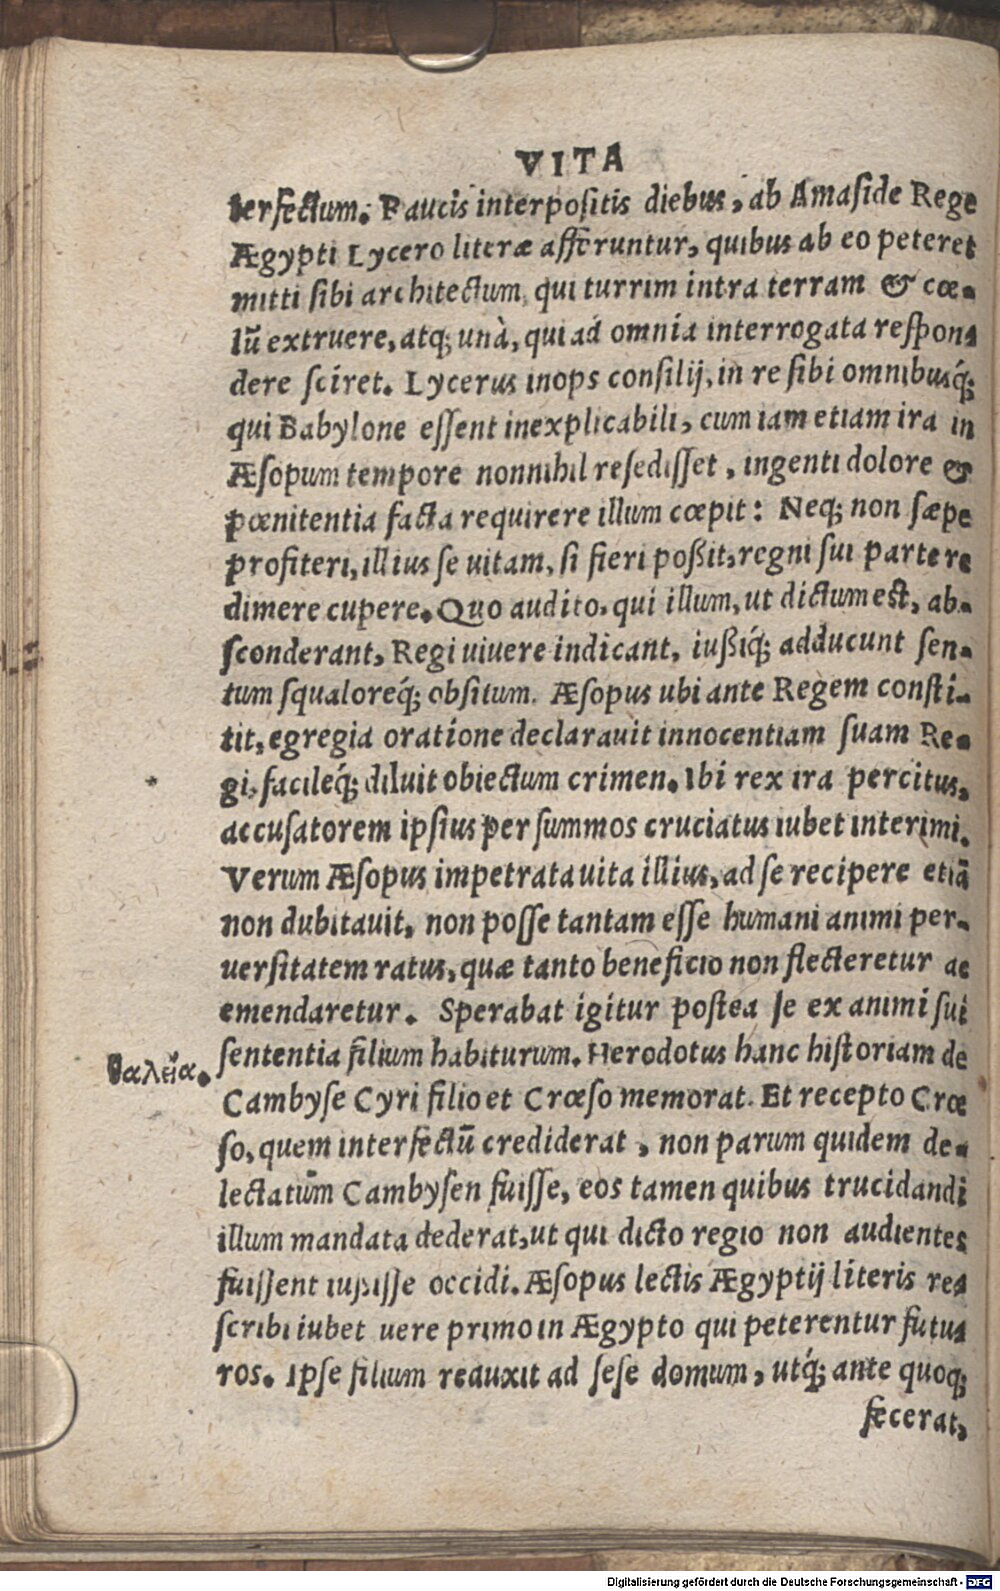 VITA
terfectum. Paucis interpositis diebus, ab Amaside Rege
Ægypti Lycero literæ afferuntur, quibus ab eo peteret
mitti sibi architectum, qui turrim intra terram & cœ-
lũ extruere, atq; unà, qui ad omnia interrogata respon-
dere sciret. Lycerus inops consilij, in re sibi omnibusq́;
qui Babylone essent inexplicabili, cum iam etiam ira in
Æsopum tempore nonnihil resedisset, ingenti dolore &
pœnitentia facta requirere illum cœpit: Neq; non sæpe
profiteri, illius se uitam, si fieri poßit, regni sui parte re
dimere cupere. Quo audito, qui illum, ut dictum est, ab-
sconderant, Regi uiuere indicant, iußiq́; adducunt sen-
tum squaloreq́; obsitum. Æsopus ubi ante Regem consti-
tit, egregia oratione declarauit innocentiam suam Re-
gi, facileq́; diluit obiectum crimen. Ibi rex ira percitus,
accusatorem ipsius per summos cruciatus iubet interimi.
Verum Æsopus impetrata uita illius, ad se recipere etiã
non dubitauit, non posse tantam esse humani animi per-
uersitatem ratus, quæ tanto beneficio non flecteretur ac
emendaretur. Sperabat igitur postea se ex animi sui
sententia filium habiturum. Herodotus hanc historiam de
θαλεία.
Cambyse Cyri filio et Crœso memorat. Et recepto Crœ
so, quem interfectũ crediderat, non parum quidem de-
lectatum Cambysen fuisse, eos tamen quibus trucidandi
illum mandata dederat, ut qui dicto regio non audientes
fuissent iussisse occidi. Æsopus lectis Ægyptij literis re-
scribi iubet uere primo in Ægypto qui peterentur futu-
ros. Ipse filium reduxit ad sese domum, utq́; ante quoq;
fecerat,
Digitalisierung gefördert durch die Deutsche Forschungsgemeinschaft - DFG